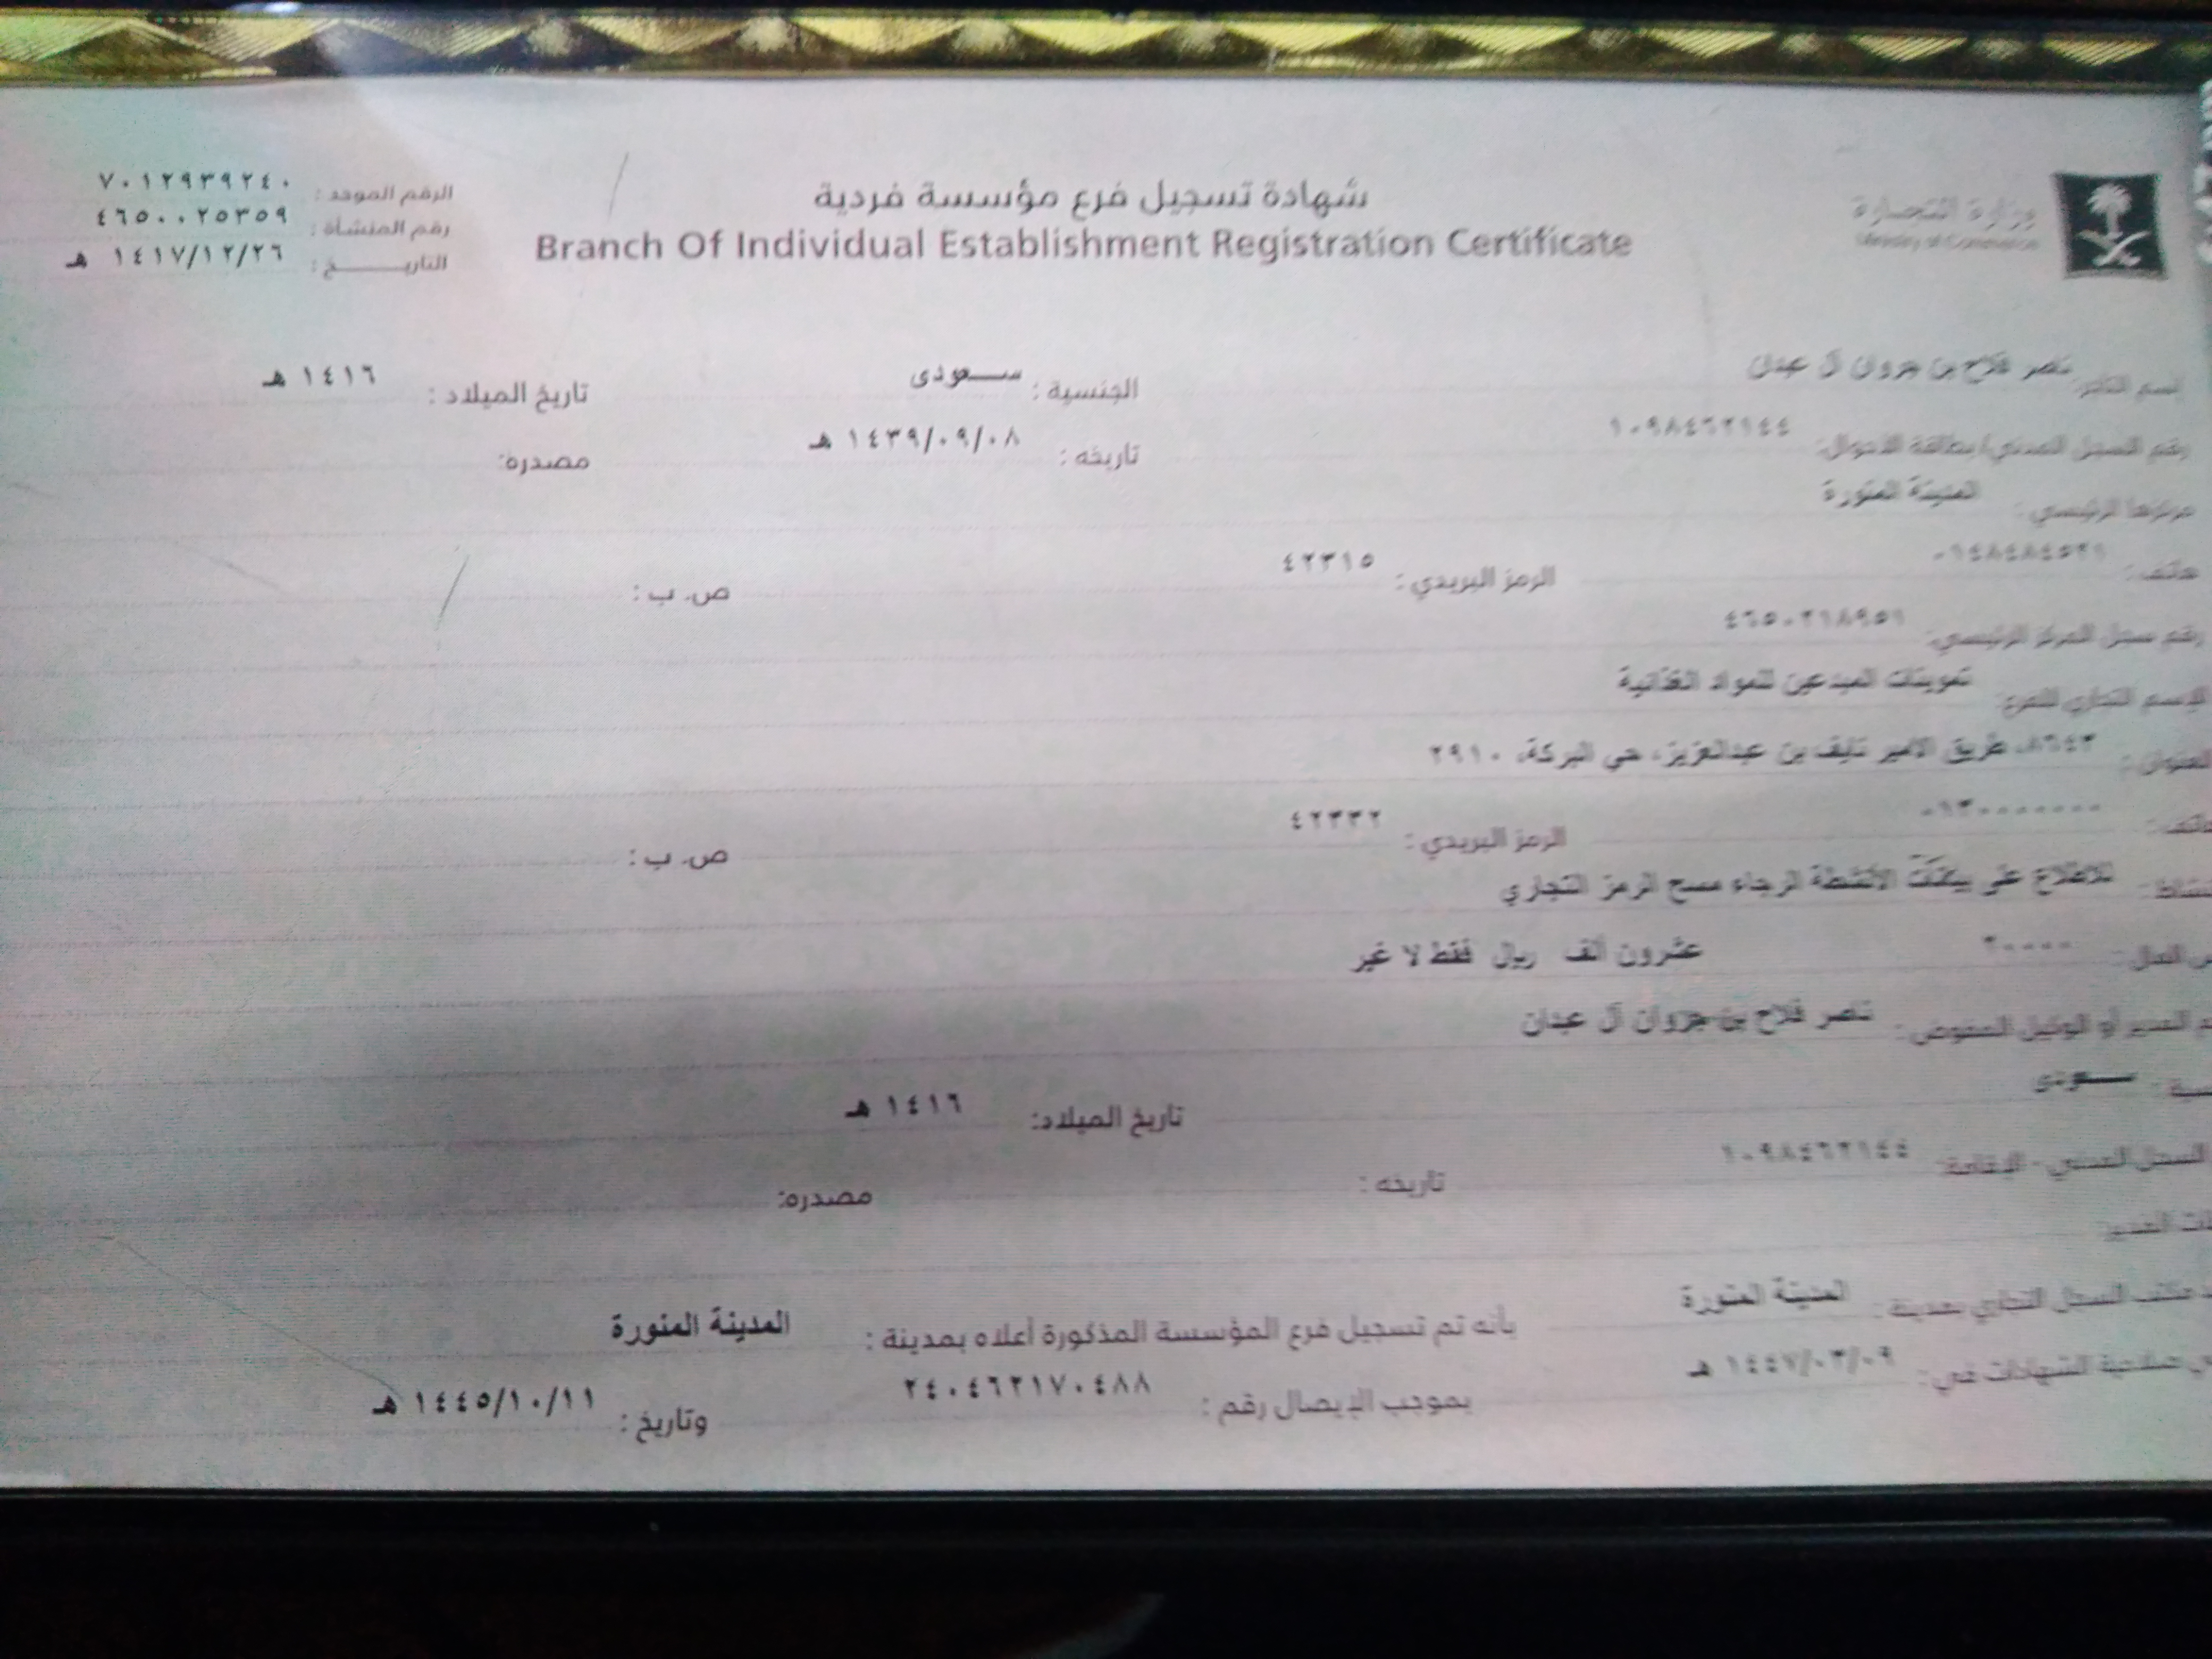 وزارة التجارة
Ministry of Commerce
شهادة تسجيل فرع مؤسسة فردية
Branch Of Individual Establishment Registration Certificate
الرقم الموحد : ٧٠١٢٩٣٩٢٤٠
رقم المنشأة : ٤٦٥٠٠٢٥٣٥٩
التاريـــــخ : ١٤١٧/١٢/٢٦ هـ
اسم التاجر: ناصر فلاح بن جزوان آل عبدان الجنسية : سـعودى تاريخ الميلاد : ١٤١٦ هـ
رقم السجل المدني/بطاقة الأحوال: تاريخه : ١٤٣٩/٠٩/٠٨ هـ مصدره:
مركزها الرئيسي : المدينة المنورة
هاتف : الرمز البريدي : ٤٢٣١٥ ص. ب :
رقم سجل المركز الرئيسي: ٤٦٥٠٢١٨٩٥١
الإسم التجاري للفرع: تموينات المبدعين للمواد الغذائية
العنوان : ٨٦٤٣، طريق الامير نايف بن عبدالعزيز، حي البركة، ٢٩١٠
هاتف : ٠١٣٠٠٠٠٠٠٠ الرمز البريدي : ٤٢٣٣٢ ص. ب :
للاطلاع على بيانات الأنشطة الرجاء مسح الرمز التجاري
المال : ٢٠٠٠٠ عشرون ألف ريال فقط لا غير
المدير أو الوكيل المفوض : ناصر فلاح بن جزوان آل عبدان
سـعودى تاريخ الميلاد: ١٤١٦ هـ
السجل المدني - الإقامة: تاريخه : مصدره:
المدير
مكتب السجل التجاري بمدينة : المدينة المنورة بأنه تم تسجيل فرع المؤسسة المذكورة أعلاه بمدينة : المدينة المنورة
صلاحية الشهادات في : ١٤٤٧/٠٣/٠٩ هـ بموجب الإيصال رقم : ٢٤٠٤٦٢١٧٠٤٨٨ وتاريخ : ١٤٤٥/١٠/١١ هـ